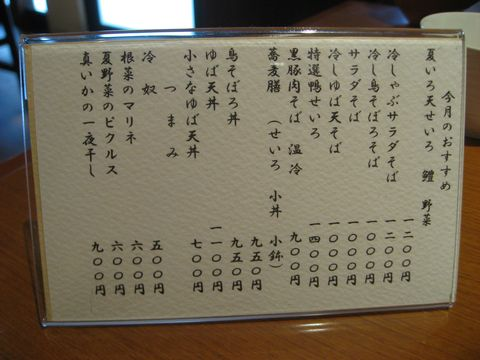 今月のおすすめ
夏いろ天せいろ 鱧 野菜
一二〇〇円
冷しゃぶサラダそば 一二〇〇円
冷し鳥そぼろそば 一〇〇〇円
サラダそば 一〇〇〇円
冷しゆば天そば 一〇〇〇円
特選鴨せいろ 一四〇〇円
黒豚肉そば 温 冷 九〇〇円
蕎麦膳 (せいろ 小丼 小鉢)
九五〇円
鳥そぼろ丼 九五〇円
ゆば天丼 一一〇〇円
小さなゆば天丼 七〇〇円
つまみ
冷奴 五〇〇円
根菜のマリネ 六〇〇円
夏野菜のピクルス 六〇〇円
真いかの一夜干し 九〇〇円